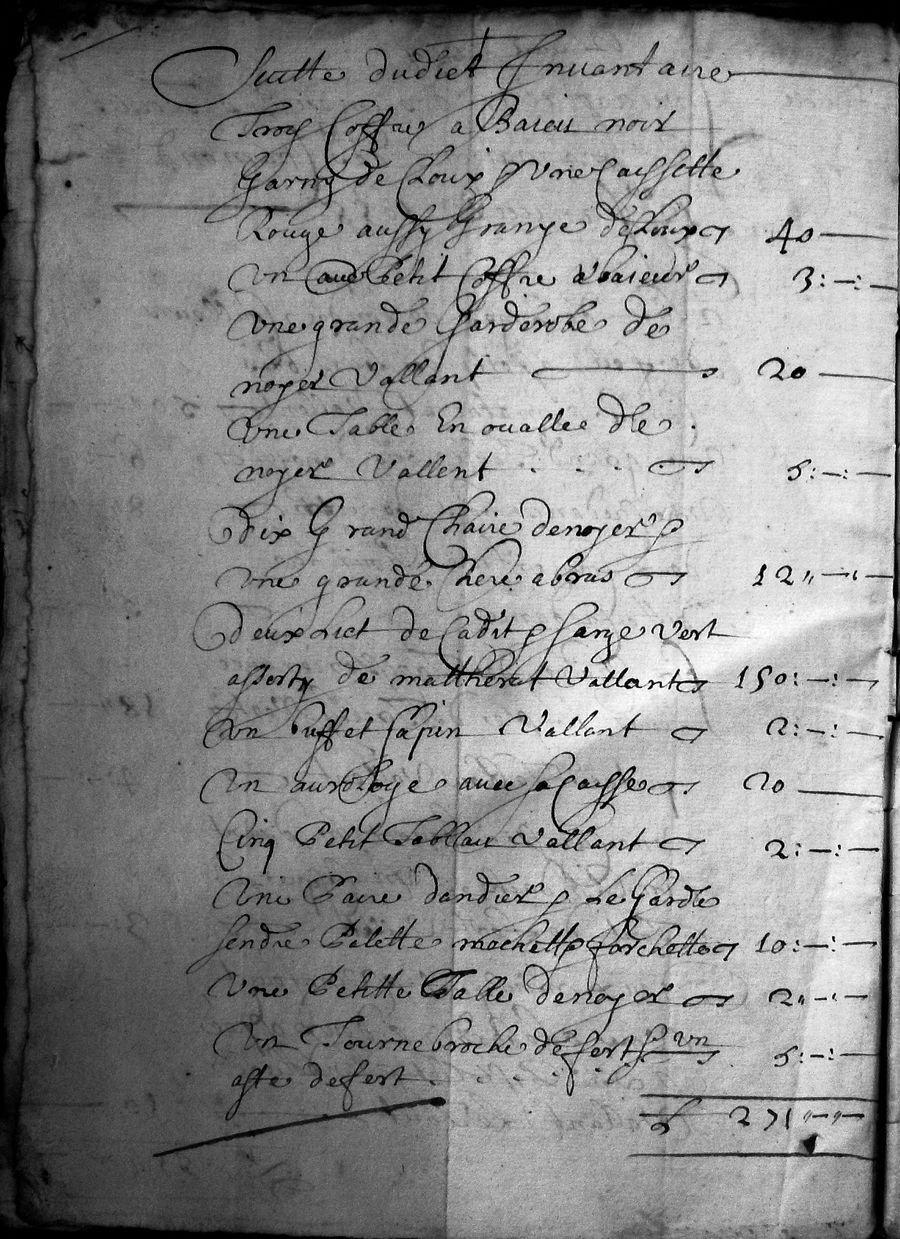 Suitte dudict Invantaire
Troy Coffre a Baieu noir
Garny de Cloux & Une Caissette
Rouge aussy Granye de Cloux 40
Un Petit Coffre a baieur 3:-:
Une grande Garderobe de
noyer Vallant 20
Une Table En ouallee de
noyer Vallent 5:-:
dix Grand Chaire de noyer &
une grande Chere a bras 12
deux Lict de Cadit & sarge Vert
assorty de mattherat Vallant 150:-:
Un buffet Sapin Vallant 2:-:
Un auroloye avec sa Caisse 20
Cinq Petit Tablau Vallant 2:-:
Une Paire dandier & Le Garde
sendre Palette mochett & forchette 10:-:
Une Petitte Talle de noyer 2
Un Tournebroche de fert & un 5:-:
aste de fert
L 271